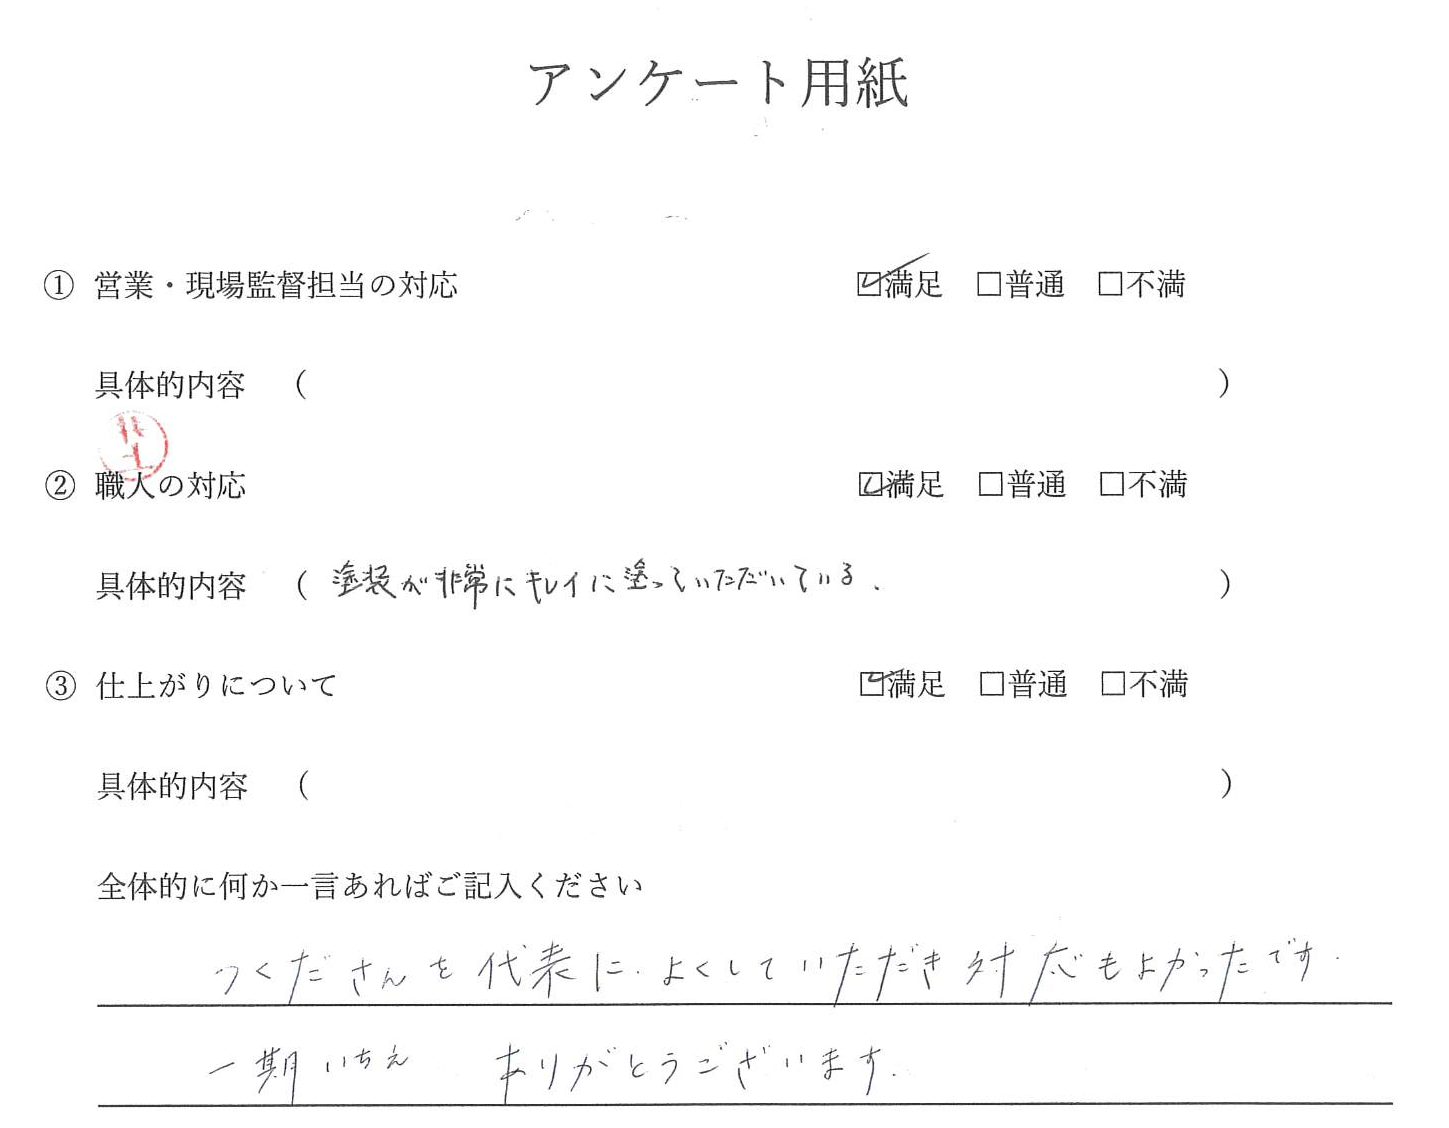 アンケート用紙
① 営業・現場監督担当の対応 ☑満足 □普通 □不満
具体的内容 ( )
② 職人の対応 ☑満足 □普通 □不満
具体的内容 ( 塗装が非常にキレイに塗っていただいている. )
③ 仕上がりについて ☑満足 □普通 □不満
具体的内容 ( )
全体的に何か一言あればご記入ください
つくださんを代表に.よくしていただき対応もよかったです.
一期いちえ ありがとうございます.